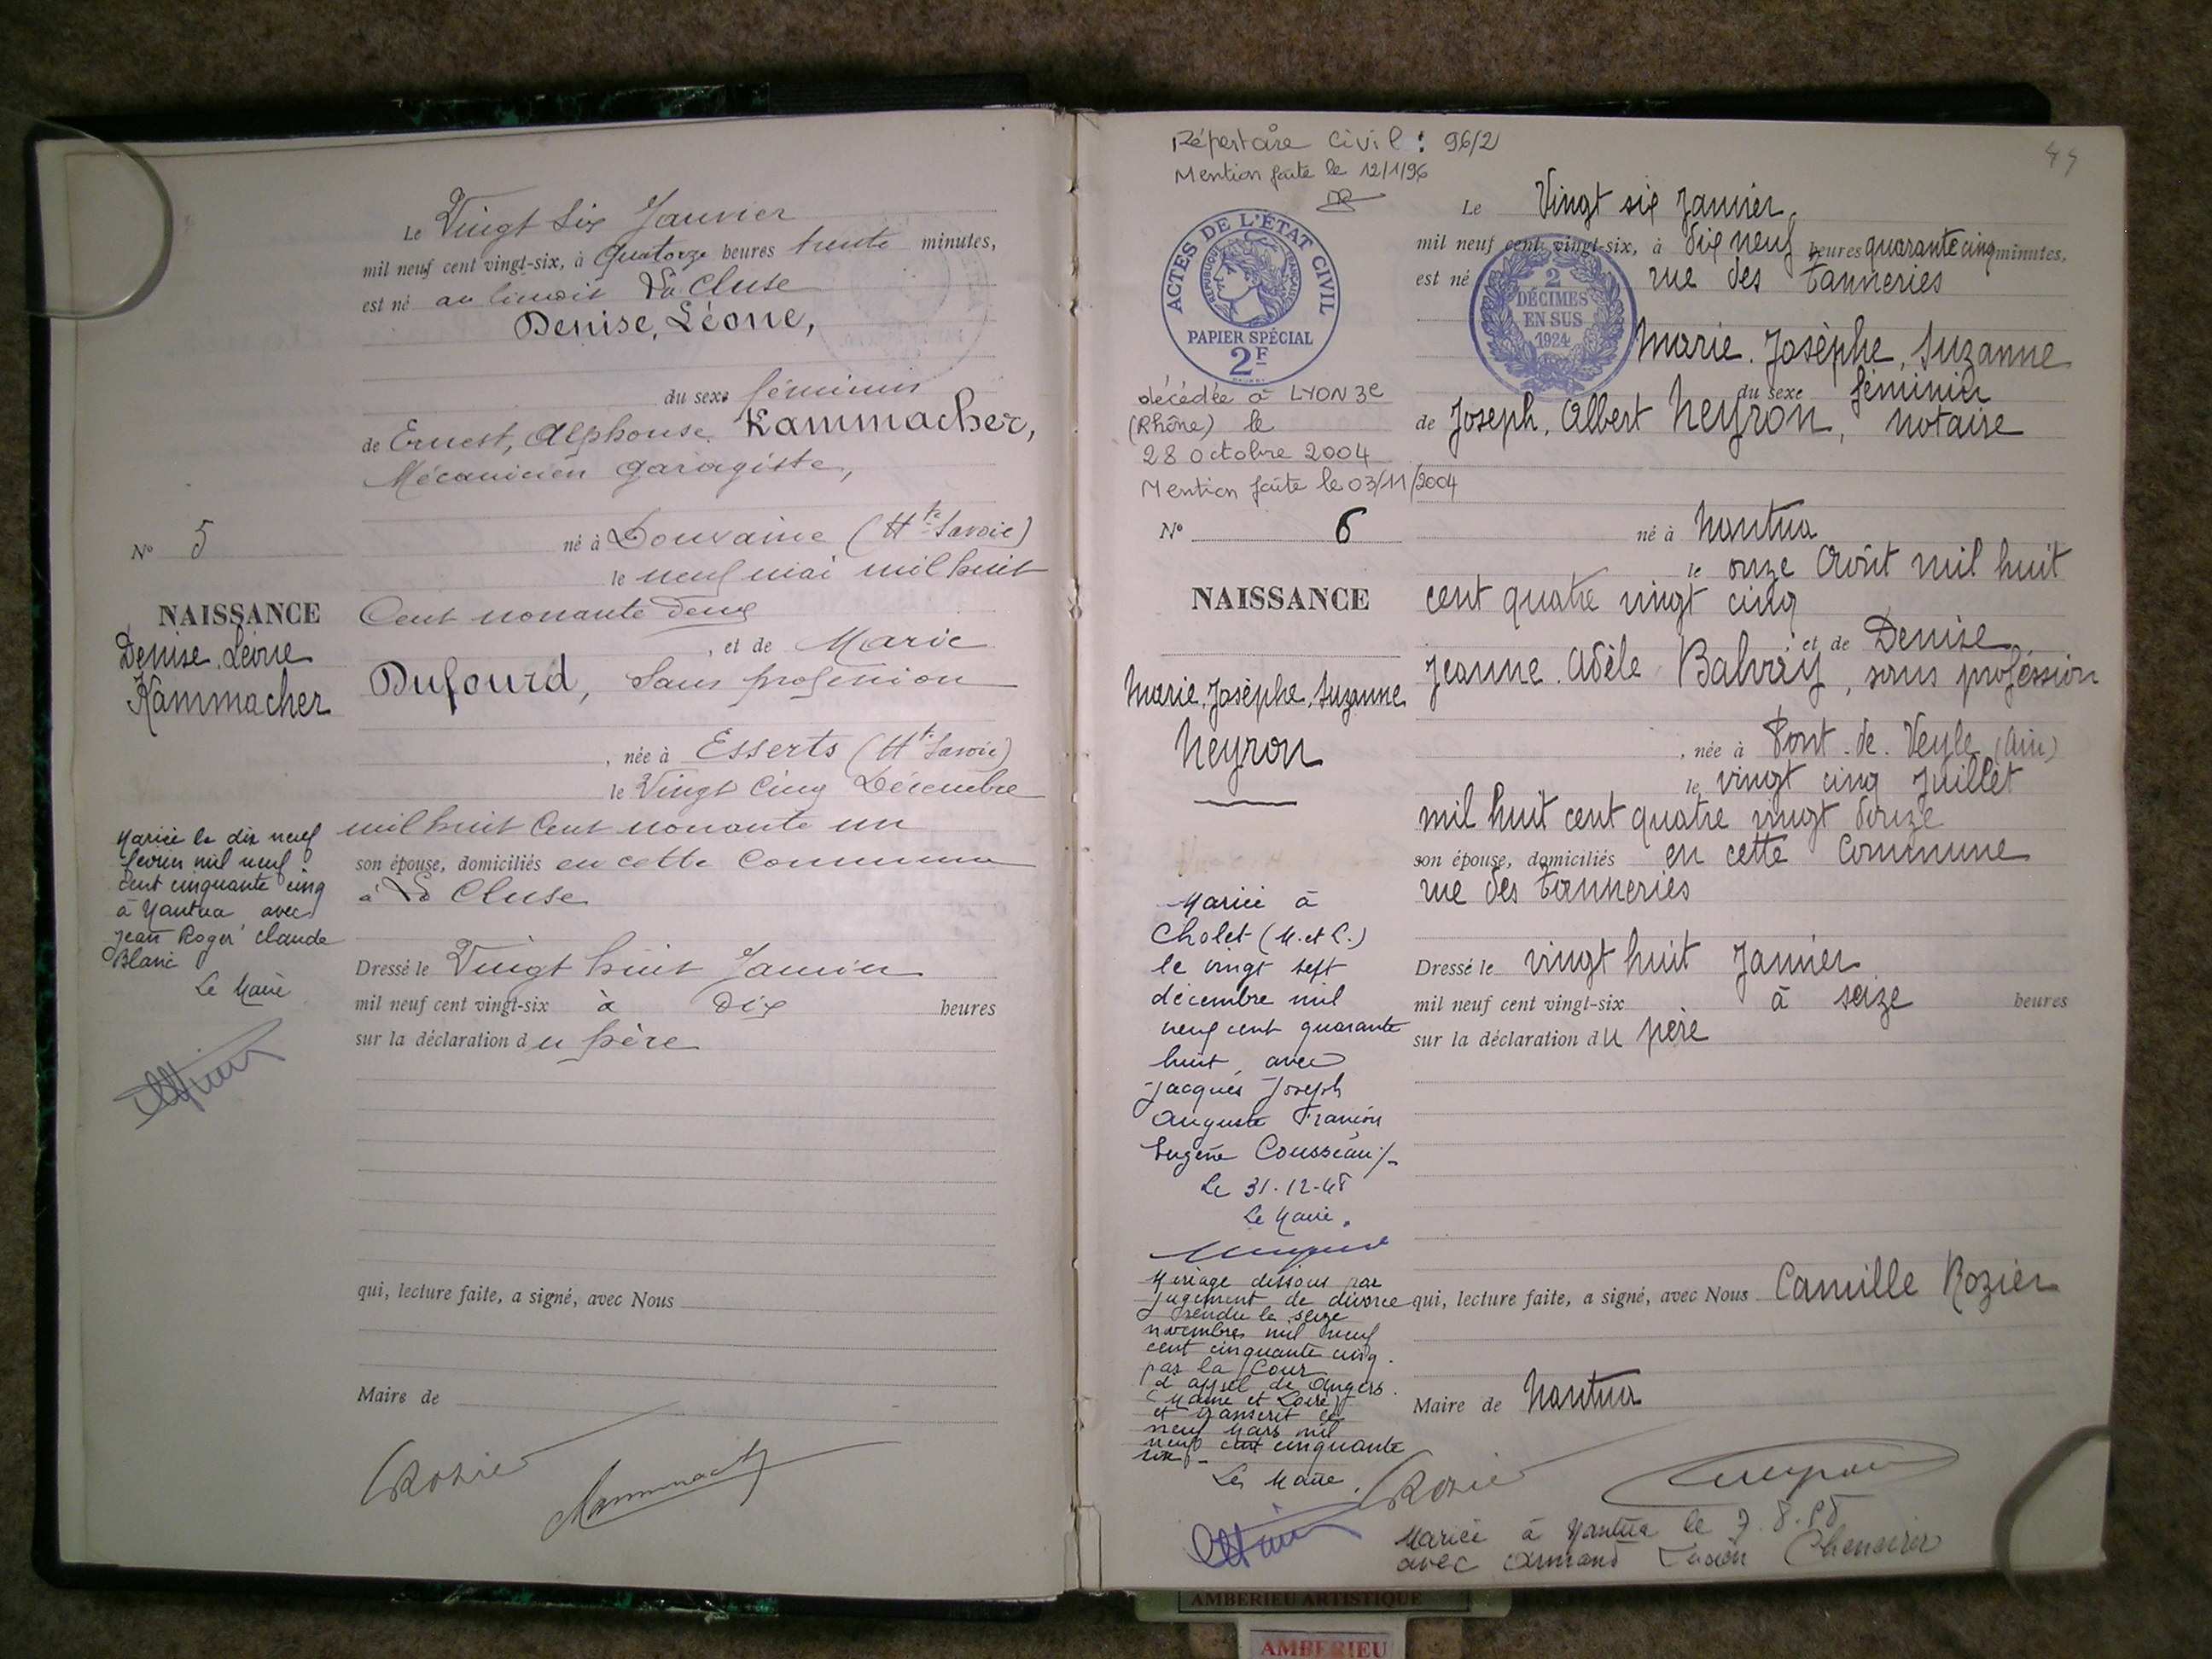 Le Vingt Six Janvier
mil neuf cent vingt-six, à Quatorze heures trente minutes,
est né au La Cluse
Denise, Léone,
du sexe féminin
de Ernest, Alphonse Kammacher,
Mécanicien garagiste,
né à Douvaine (Hte Savoie)
le neuf mai mil huit
Cent nonante deux
, et de Marie
Dufourd, Sans profession
, née à Esserts (Hte Savoie)
le Vingt Cinq Décembre
mil huit Cent nonante un
son épouse, domiciliés en cette Commune
à La Cluse
Dressé le Vingt huit Janvier
mil neuf cent vingt-six à Dix heures
sur la déclaration du père
qui, lecture faite, a signé, avec Nous
Maire de
Rozier
Kammacher
No 5
NAISSANCE
Denise, Léone
Kammacher
Mariée le dix neuf
février mil neuf
cent cinquante cinq
à Nantua avec
Jean Roger Claude
Blanc
Le Maire
Répertoire Civil : 96/2
Mention faite le 12/1/96
ACTES DE L'ÉTAT CIVIL
RÉPUBLIQUE FRANÇAISE
PAPIER SPÉCIAL
2F
décédée à LYON 3e
(Rhône) le
28 octobre 2004
Mention faite le 03/11/2004
No 6
NAISSANCE
Marie, Josèphe, Suzanne
Neyron
Mariée à
Cholet (M. et L.)
le vingt sept
décembre mil
neuf cent quarante
huit avec
Jacques Joseph
Auguste François
Eugène Cousseau
Le 31-12-48
Le Maire.
Mariage dissous par
jugement de divorce
rendu le seize
novembre mil neuf
cent cinquante cinq
par la Cour
d'appel de Angers
(Maine et Loire)
et transcrit le
neuf Mars mil
neuf cent cinquante
six
Le Maire
Le Vingt six Janvier,
mil neuf cent vingt-six, à dix neuf heures quarante cinq minutes,
est né rue des Tanneries
2
DÉCIMES
EN SUS
1924
Marie. Josèphe, Suzanne
du sexe féminin
de Joseph, Albert Neyron, notaire
né à Nantua
le onze Août mil huit
cent quatre vingt cinq
et de Denise
Jeanne. Adèle, sans profession
, née à Pont. de. Veyle (Ain)
le vingt cinq Juillet
mil huit cent quatre vingt douze
son épouse, domiciliés en cette Commune
rue des Tanneries
Dressé le vingt huit Janvier
mil neuf cent vingt-six à seize heures
sur la déclaration du père
qui, lecture faite, a signé, avec Nous Camille Rozier
Maire de Nantua
Rozier
Mariée à Nantua le
avec Armand
AMBERIEU ARTISTIQUE
AMBERIEU